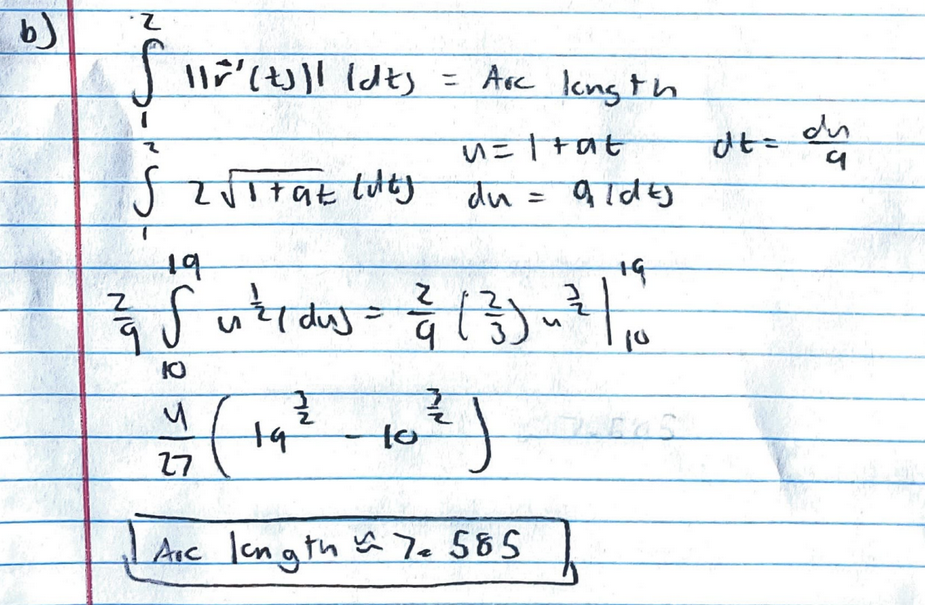 b) ∫₁² ||r⃗'(t)|| (dt) = Arc length
∫₁² 2√(1+9t) (dt) u = 1+9t du = 9(dt) dt = du/9
2/9 ∫₁₀¹⁹ u^(1/2) (du) = 2/9 (2/3) u^(3/2) |₁₀¹⁹
4/27 (19^(3/2) - 10^(3/2))
Arc length ≈ 7.585